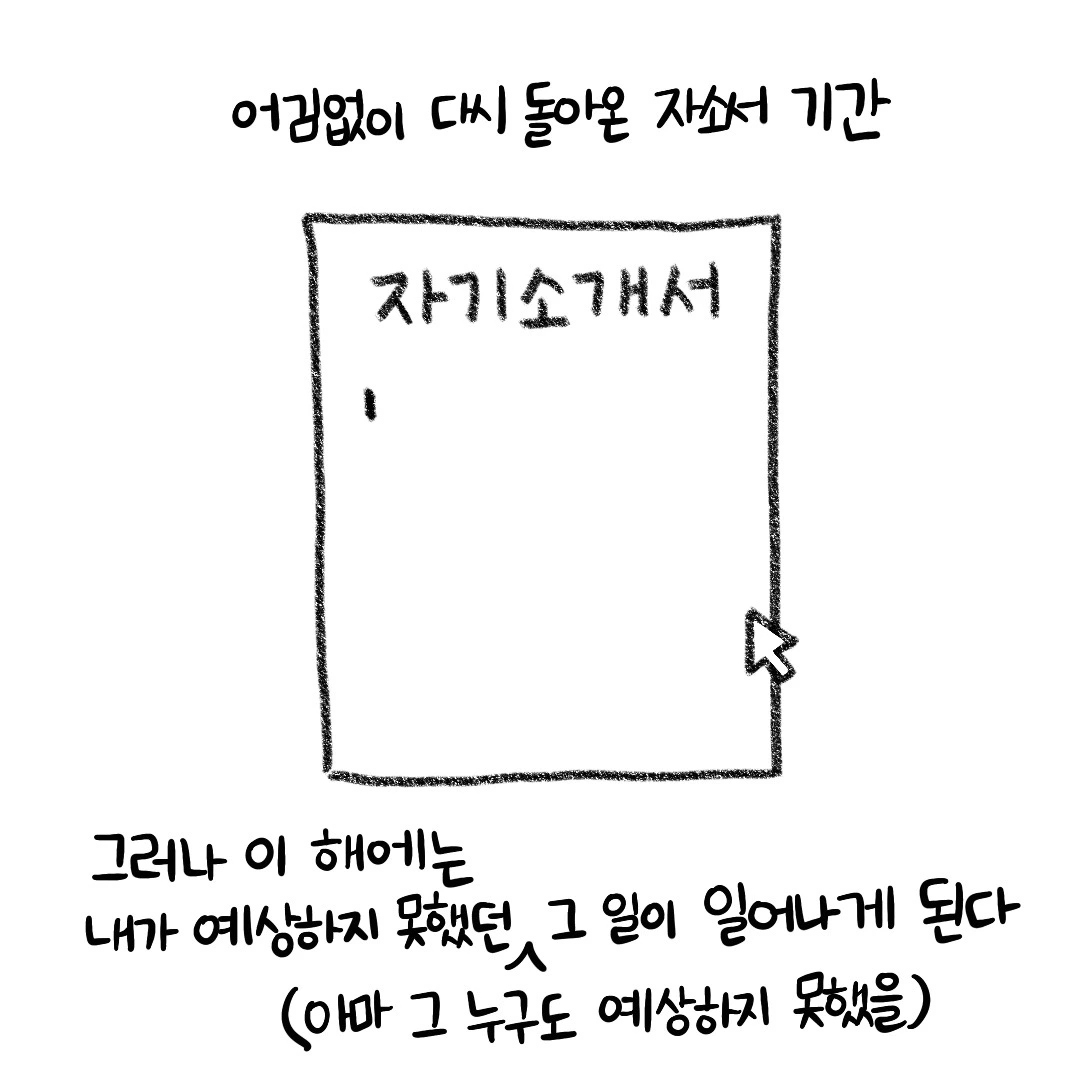 어김없이 다시 돌아온 자소서 기간
자기소개서
그러나 이 해에는
내가 예상하지 못했던 그 일이 일어나게 된다
(아마 그 누구도 예상하지 못했을)